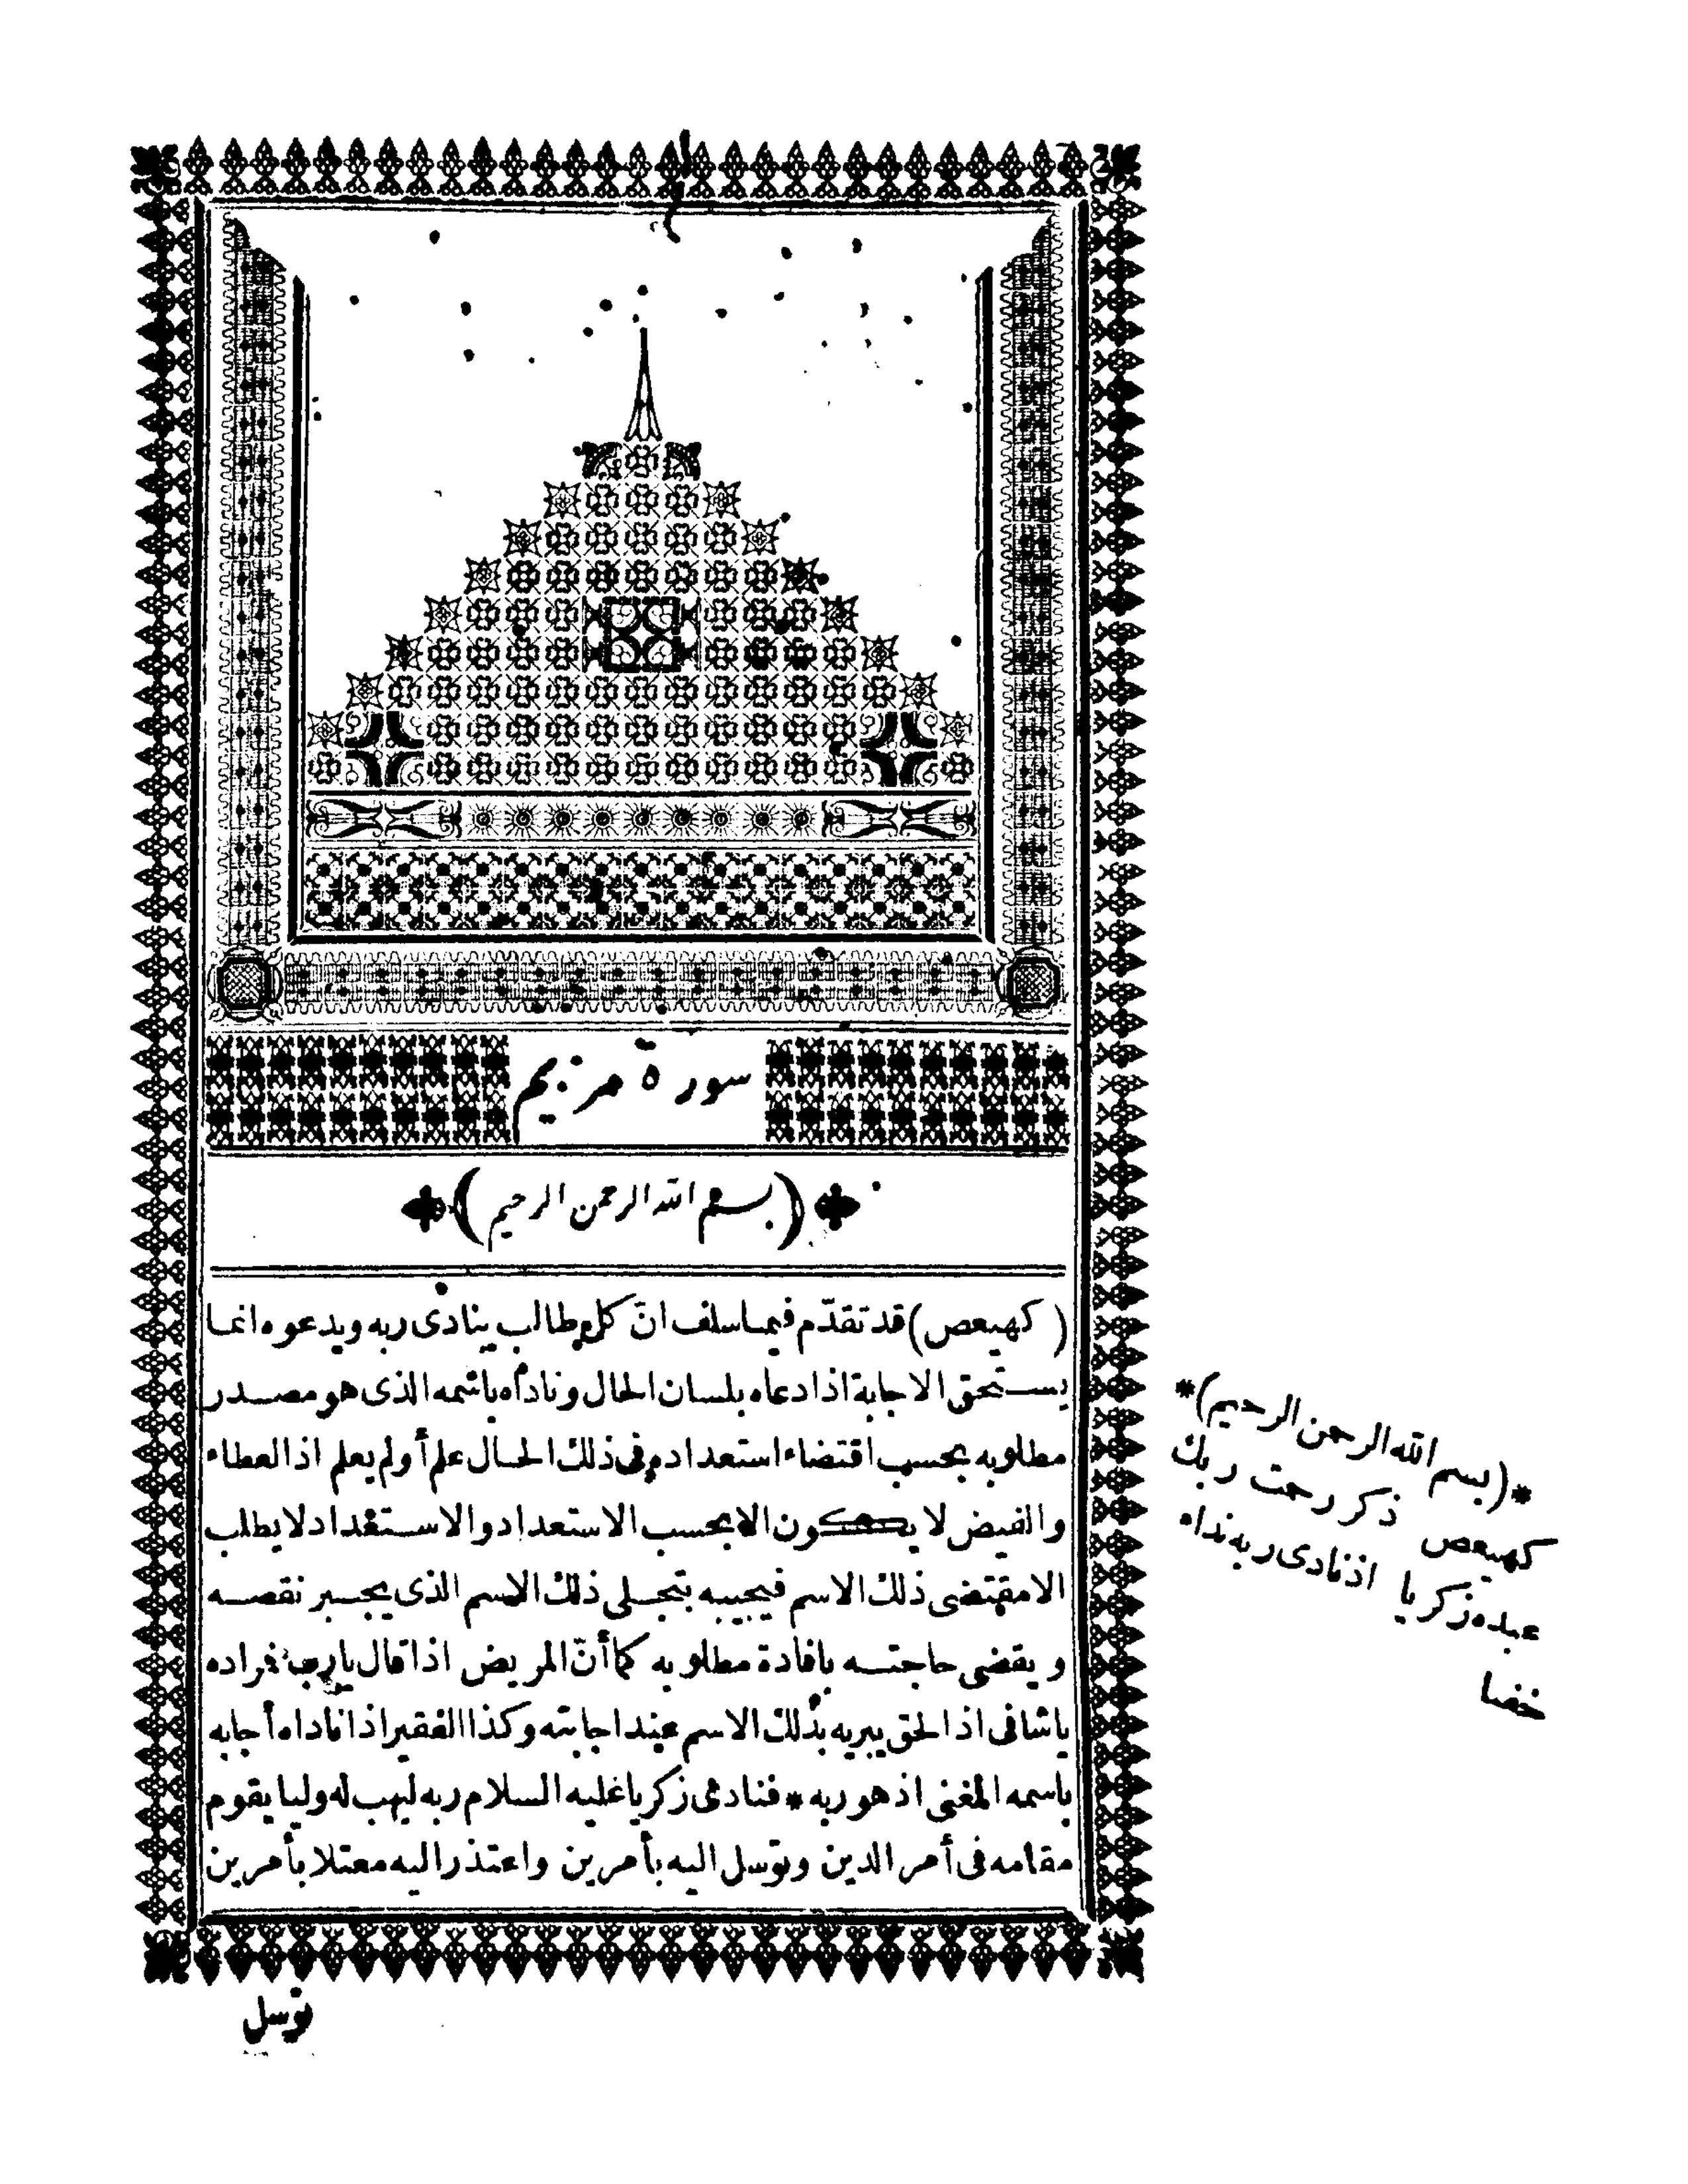 سورة مريم
(بسم الله الرحمن الرحيم)
(كهيعص) قد تقدّم فيما سلف انّ كل طالب ينادى ربه ويدعوه انما
يستحق الاجابة اذا دعاه بلسان الحال وناداه باسمه الذى هو مصدر
مطلوبه بحسب اقتضاء استعداده فى ذلك الحال علم أو لم يعلم اذ العطاء
والفيض لا يكون الا بحسب الاستعداد والاستعداد لا يطلب
الا مقتضى ذلك الاسم فيجيبه بتجلى ذلك الاسم الذى يجبر نقصه
ويقضى حاجته بافادة مطلوبه كما أنّ المريض اذا قال يا رب فراده
يا شافى اذ الحق يبريه بذلك الاسم عند اجابته وكذا الفقير اذا ناداه أجابه
باسمه المغنى اذ هو ربه * فنادى زكريا عليه السلام ربه ليهب له وليا يقوم
مقامه فى أمر الدين وتوسل اليه بأمرين واعتذر اليه معتلا بأمرين
توسل
*(بسم الله الرحمن الرحيم)*
كهيعص ذكر رحمت ربك
عبده زكريا اذ نادى ربه نداء
خفيا